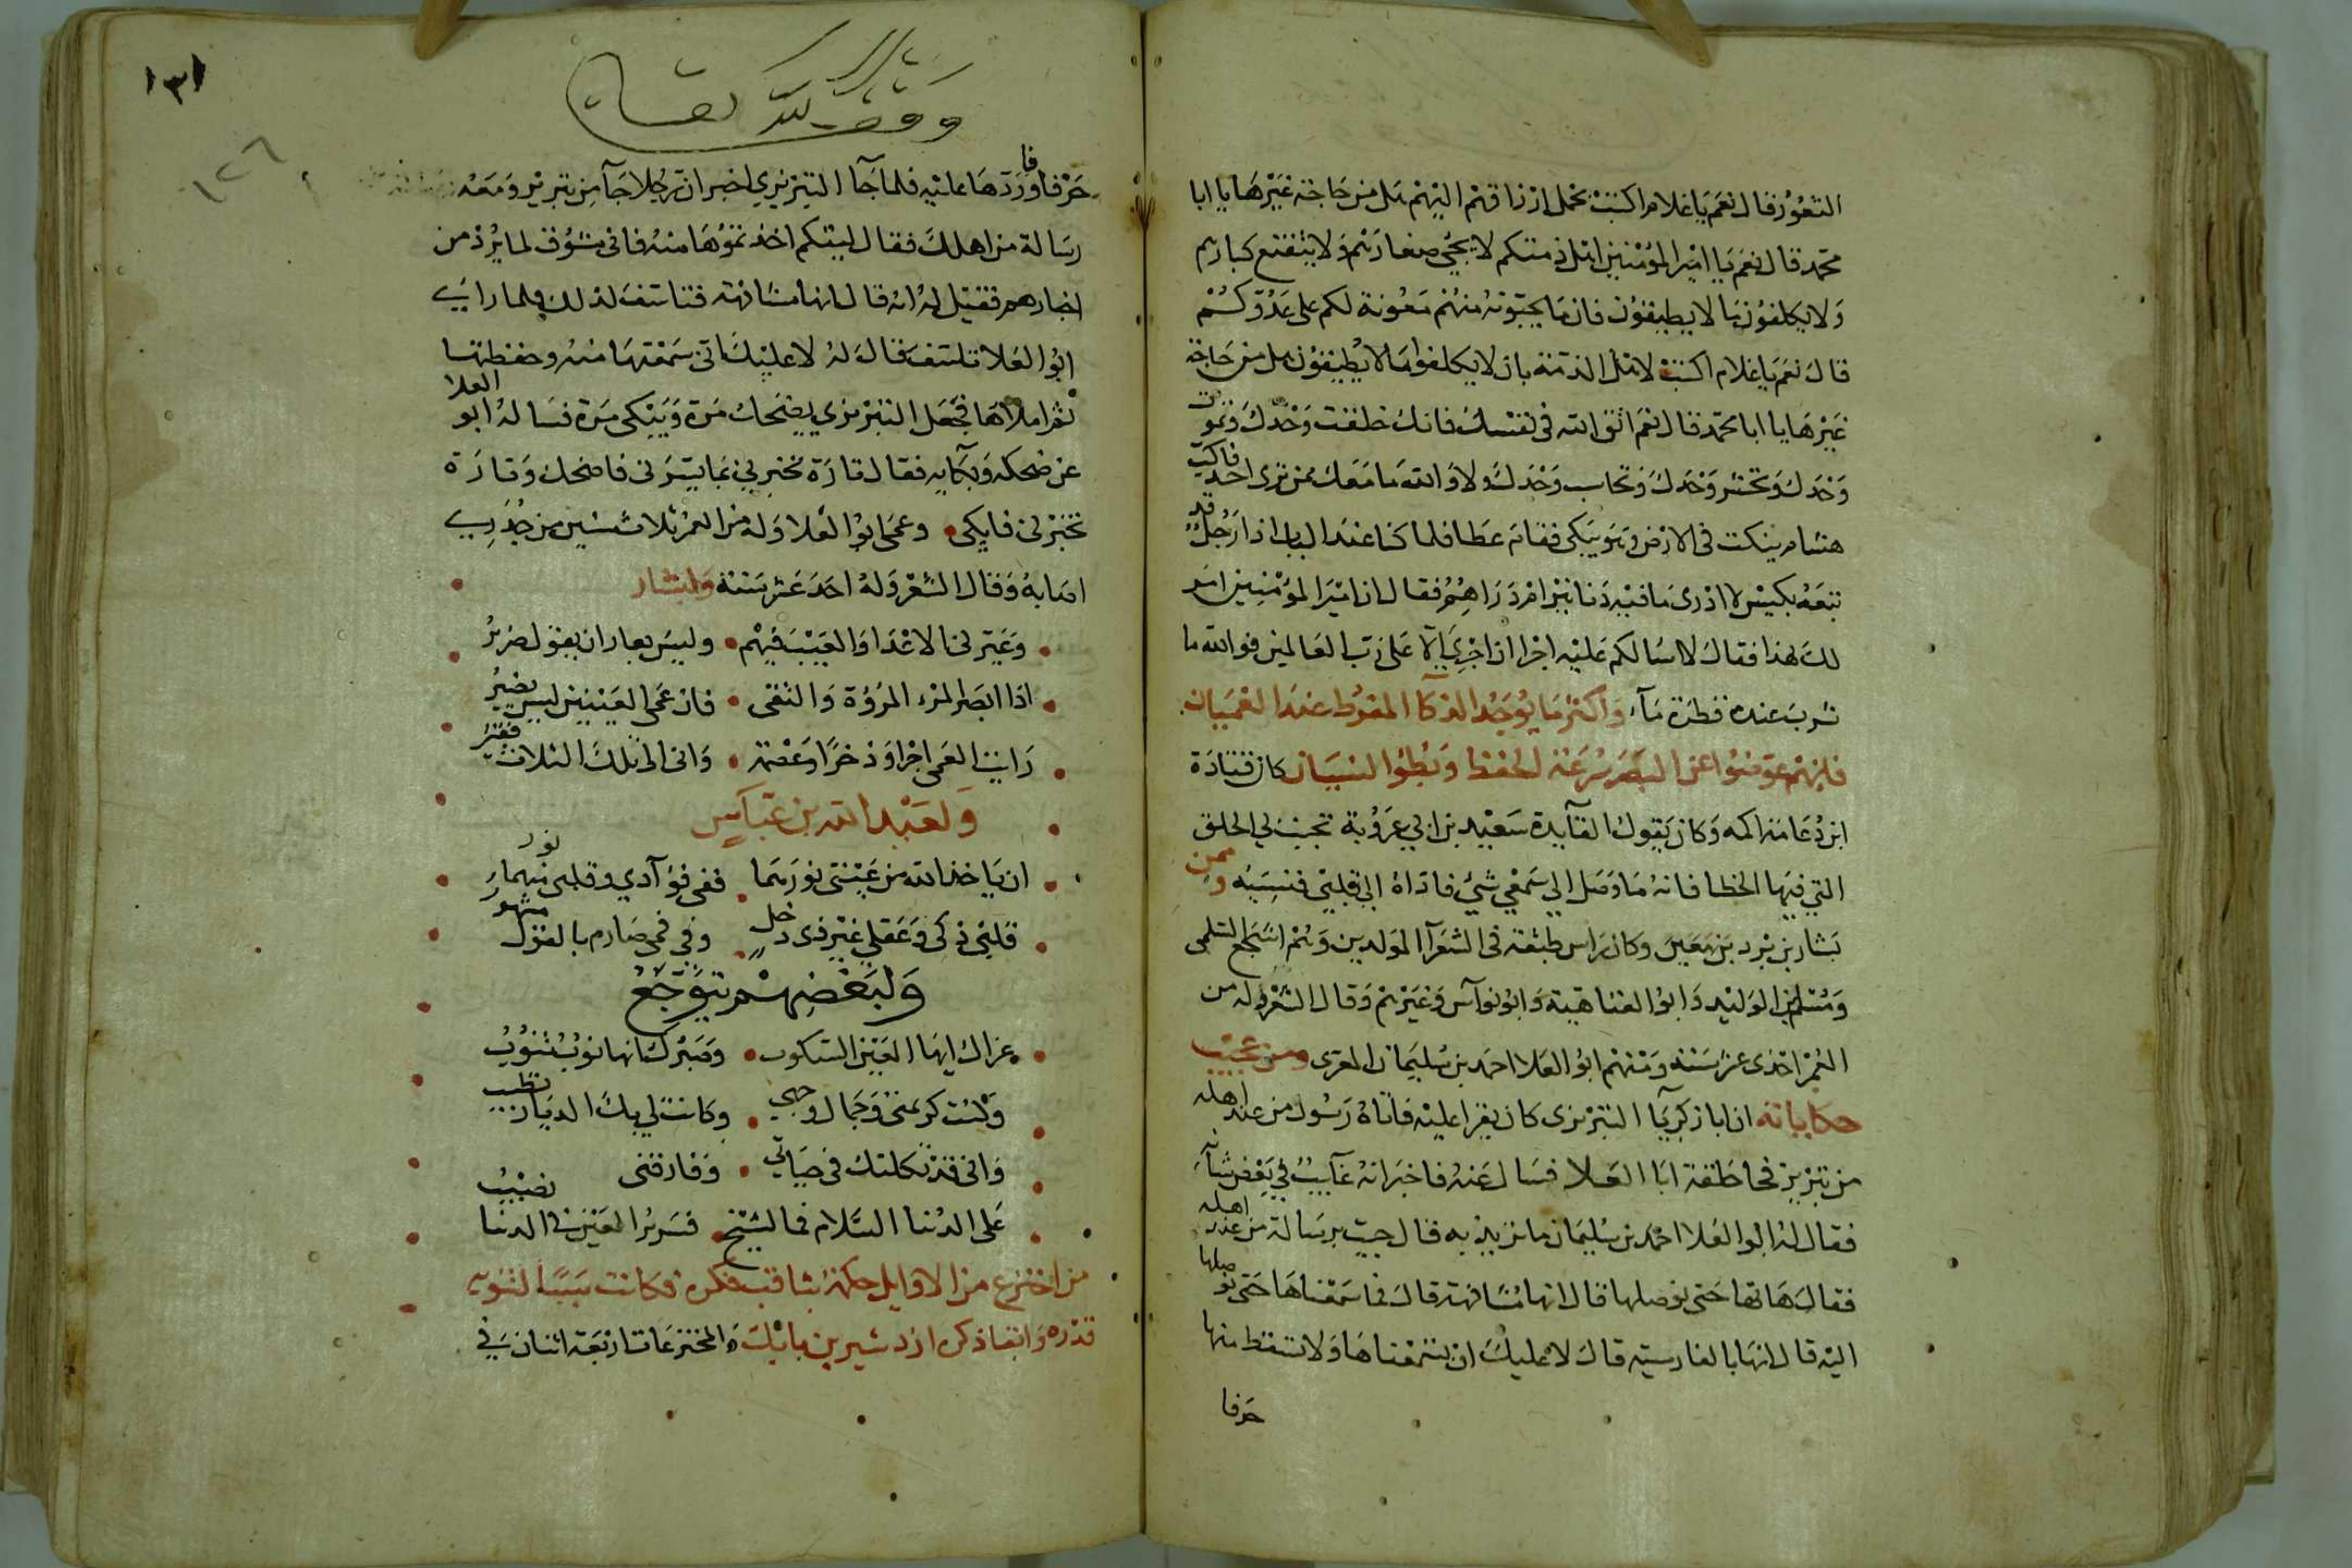 الثغور قال نعم يا غلام اكتب تحمل ارزاقهم اليهم هل من حاجة غيرها يا ابا
محمد قال نعم يا امير المؤمنين اهل ذمتكم لا يجبى صغارهم ولا يتعتع كبارهم
ولا يكلفون ما لا يطيقون فان ما يجبونه منهم معونة لكم على عدوكم
قال نعم يا غلام اكتب لاهل الذمة بان لا يكلفوا ما لا يطيقون هل من حاجة
غيرها يا ابا محمد قال نعم اتق الله في نفسك فانك خلقت وحدك وتموت
وحدك وتحشر وحدك وتحاسب وحدك ولا والله ما معك ممن ترى احد فاكب
هشام ينكت في الارض وهو يبكي فقام عطا فلما كنا عند الباب اذا رجل قد
تبعه بكيس لا ادري ما فيه دنانير ام دراهم فقال ان امير المؤمنين امر
لك بهذا فقال لا اسالكم عليه اجرا ان اجري الا على رب العالمين فوالله ما
شرب عنده قطرة ماء واكثر ما يوجد الذكا المفرط عند العميان
فانهم عوضوا عن البصر سرعة الحفظ وبطؤ النسيان كان قتادة
ابن دعامة اكمه وكان يقول لقايده سعيد بن ابي عروبة تجنب لي الحلق
التي فيها الخطا فانه ما وصل الى سمعي شئ فاداه الى قلبي فنسيه وممن
بشار بن برد بن وكان راس طبقته في الشعرآ المولدين وهم اشجع السلمى
ومسلم بن الوليد وابو العتاهية وابو نوآس وغيرهم وقال الشعر وله من
العمر احدى عشر سنة ومنهم ابو العلا احمد بن سليمان المعرى ومن عجيب
حكاياته ان ابا زكريا التبريزى كان يقرا عليه فاتاه رسول من عند اهله
من تبريز في حلقة ابا العلا فسال عنه فاخبر انه غآيب في بعض شآنه
فقال له ابو العلا احمد بن سليمان ما تريد به قال جيت برسالة من عند اهله
فقال هاتها حتى نوصلها قال انها مشافهة قال فاسمعناها حتى نوصلها
اليه قال انها بالفارسية قال لا عليك ان تسمعناها ولا تسقط منها
حرفا
١٣١
١٢٦
وقف لله تعالى
حرفا فاوردها عليه فلما جآ التبريزي اخبر ان رجلا جآ من تبريز ومعه
رسالة من اهلك فقال ليتكم اخذتموها منه فاني مشوق لما يرد من
اخبارهم فقيل له انه قال انها مشافهة فتاسف لذلك فلما راى
ابو العلا تلهفه قال له لا عليك اني سمعتها منه وحفظتها
ثم املاها فجعل التبريزي يضحك مرة ويبكي مرة فساله ابو العلا
عن ضحكه وبكآيه فقال تارة تخبرني بما يسرني فاضحك وتارة
تخبرني فابكي وعمى ابو العلا وله من العمر ثلاث سنين من جدري
اصابه وقال الشعر وله احد عشر سنة ولبشار
وعيرني الاعدا والعيب فيهم وليس بعار ان يقول ضرير
اذا ابصر المرء المروة والتقى فان عمى العينين ليس يضير
رايت العمى اجرا وذخرا وعصمة واني الى تلك الثلاث فقير
ولعبد الله بن عباس
ان ياخذ الله من عيني نورهما ففي فؤآدي وقلبي منهما نور
قلبي ذكي وعقلي غير ذي دخل وفي فمي صارم بالقول مشهور
ولبعضهم يتوجع
عزاك ايها العين السكوب وصبرك انها نوب تنوب
وكنت كريمتي وجمال وجهي وكانت لي بك الدنيا تطيب
واني قد ثكلتك في حياتي وفارقني
على الدنيا السلام فما لشيخ ضرير العين في الدنيا نصيب
من اخترع من الاوايل حكمة بثاقب فكره فكانت سببا لتنويه
قدره وابقا ذكره اردشير بن بابك والمخترعات اربعة اثنان في